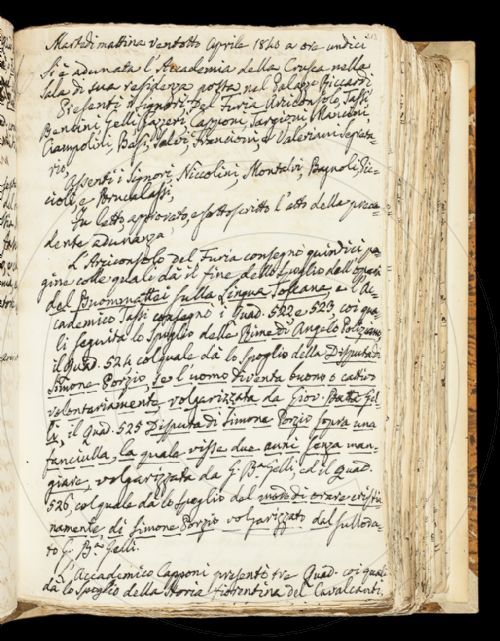 Martedì mattina ventotto Aprile 1840 a ore undici
si è adunata l'Accademia della Crusca nella
Sala di sua residenza posta nel Palazzo Riccardi.
Presenti i Signori Del Furia Arciconsolo, Tassi,
Bencini, Gelli, Gazzeri, Capponi, Targioni, Mancini,
Ciampolini, Basi, Salvi, Arcangioli, e Valeriani Segreta-
rio;
Assenti i Signori, Niccolini, Montalvi, Bagnoli, Ric-
cioli, e Brucalassi;
Fu letto, approvato, e sottoscritto l'atto della prece-
dente adunanza;
L'Arciconsolo del Furia consegnò quindici pa-
gine colle quali dà il fine dello spoglio dell'opera
del Buommattei sulla Lingua Toscana, e l'Ac-
cademico Tassi consegnò i Quad. 522 e 523, coi qua-
li seguita lo Spoglio delle Rime di Angelo Poliziano,
il Quad. 524 col quale dà lo Spoglio della Disputa di
Simone Porzio, se l'uomo diventa buono o cattivo
volontariamente, volgarizzata da Giov. Batta Gel-
li, il Quad. 525 Disputa di Simone Porzio sopra una
fanciulla, la quale visse due anni senza man-
giare, volgarizzata da G. Ba. Gelli, ed il Quad.
526, col quale dà lo spoglio del modo di orare cristia-
namente di Simone Porzio volgarizzato dal sulloda-
to G. Ba. Gelli.
L'Accademico Capponi presentò tre Quad. coi quali
dà lo Spoglio della Storia fiorentina del Cavalcanti.